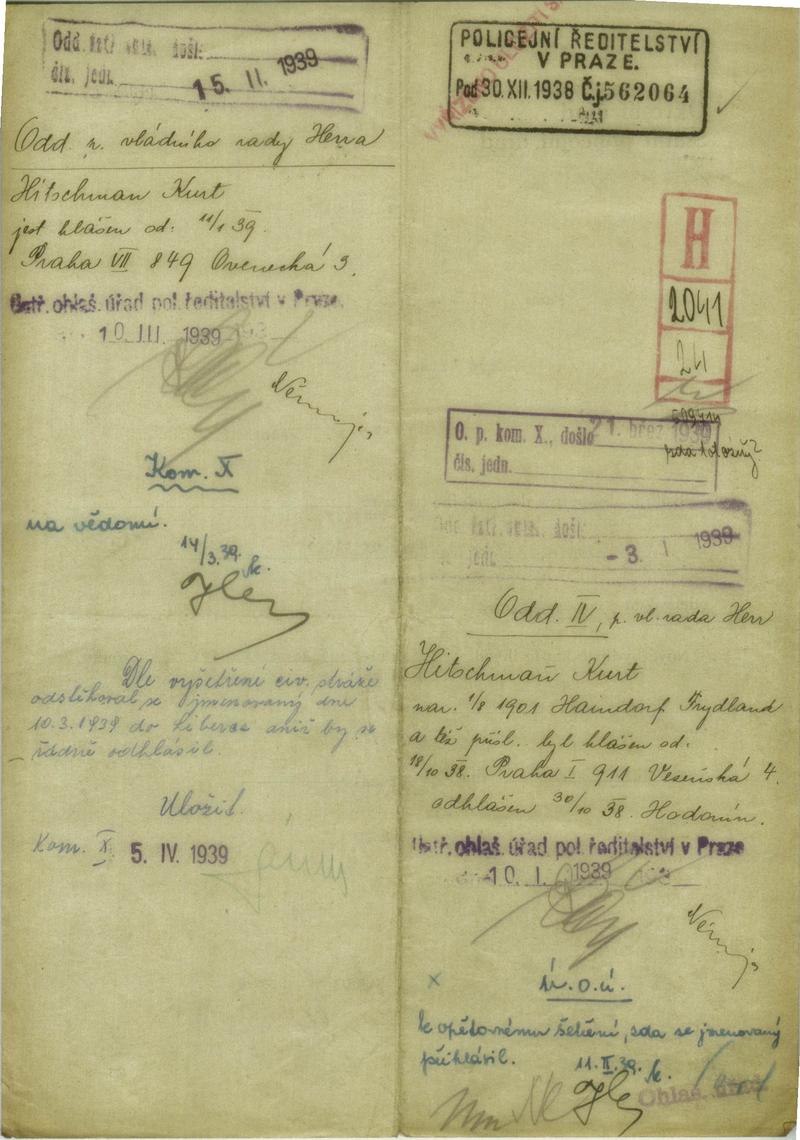 Odd. ústř. došl:
čís. jedn.
15. II. 1939
Odd. p. vládního rady Herra
Hitschman Kurt
jest hlášen od: 11/1 39.
Praha VII 849 Ovenecká 3.
Ústř. ohlaš. úřad pol. ředitelství v Praze.
10. III. 1939
Kom. X
na vědomí.
14/3.39.
k.
Dle vyšetření civ. stráže
odstěhoval se jmenovaný dne
10.3.1939 do Liberce aniž by se
řádně odhlásil.
Uložit.
Kom. X. 5. IV. 1939
POLICEJNÍ ŘEDITELSTVÍ
V PRAZE.
Pod 30. XII. 1938 Č.j. 562064
H
2041
24
O. p. kom. X., došlo 21. břez 1939
čís. jedn.
došl:
jedn. - 3. 1939
Odd. IV, p. vl. rada Herr
Hitschman Kurt
nar. 1/8 1901 Haindorf Frydland
a též přísl. byl hlášen od:
18/10 38. Praha I 911 Veseňská 4.
odhlášen 30/10 38. Hodonín.
Ústř. ohlaš. úřad pol. ředitelství v Praze
10. I. 1939
ú. o. ú.
k opětovnému šetření, zda se jmenovaný
přihlásil.
11. II. 39. k.
Ohlaš. úřad